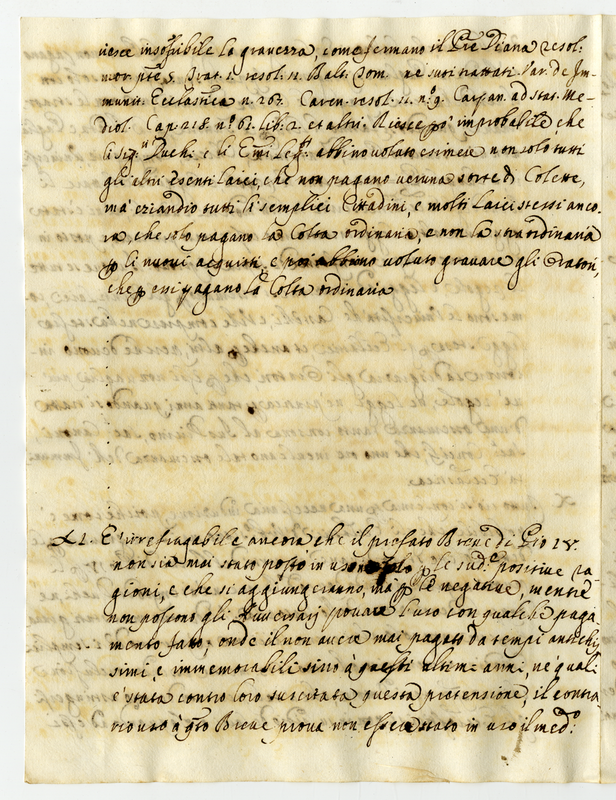 riesce insoffribile la gravezza, come fermano il Pre Diana resol:
mor. pte 8. trat. 1. resol. 11. Balt. Gom. ne suoi trattati. Var. de Im-
munit. Ecclastica n. 267. Caren. resol. 11. n.º 9. Carpan. ad stat. Me-
diol. Cap. 218. n.º 61. lib. 2. et altri. Riesce improbabile, che
li Sig.ri Duchi, e li Emi Leg.ti abbino voluto esimere non solo tutti
gli altri Esenti Laici, che non pagano veruna sorte di Colette,
ma eziandio tutti li semplici Cittadini, e molti Laici stessi anco-
ra, che solo pagano la Colta ordinaria, e non la straordinaria
p li nuovi acquisti, e poi abbino voluto gravare gli Oratori,
che p essi pagano la Colta ordinaria
XI. E' irrefragabile ancora che il prefato Breve di Pio IV.
non sia mai stato posto in uso non solo p le sud.e positive ra-
gioni, e che si aggiungeranno, ma p le negative, mentre
non possono gli Avversarj provare l'uso con qualche paga-
mento fatto, onde il non avere mai pagato da tempi antichis-
simi, e immemorabili sino à questi ultimi anni, ne' quali
è stata contro loro suscitata questa pretensione, il contra-
rio uso à qto Breve prova non essere stato in uso il med.º